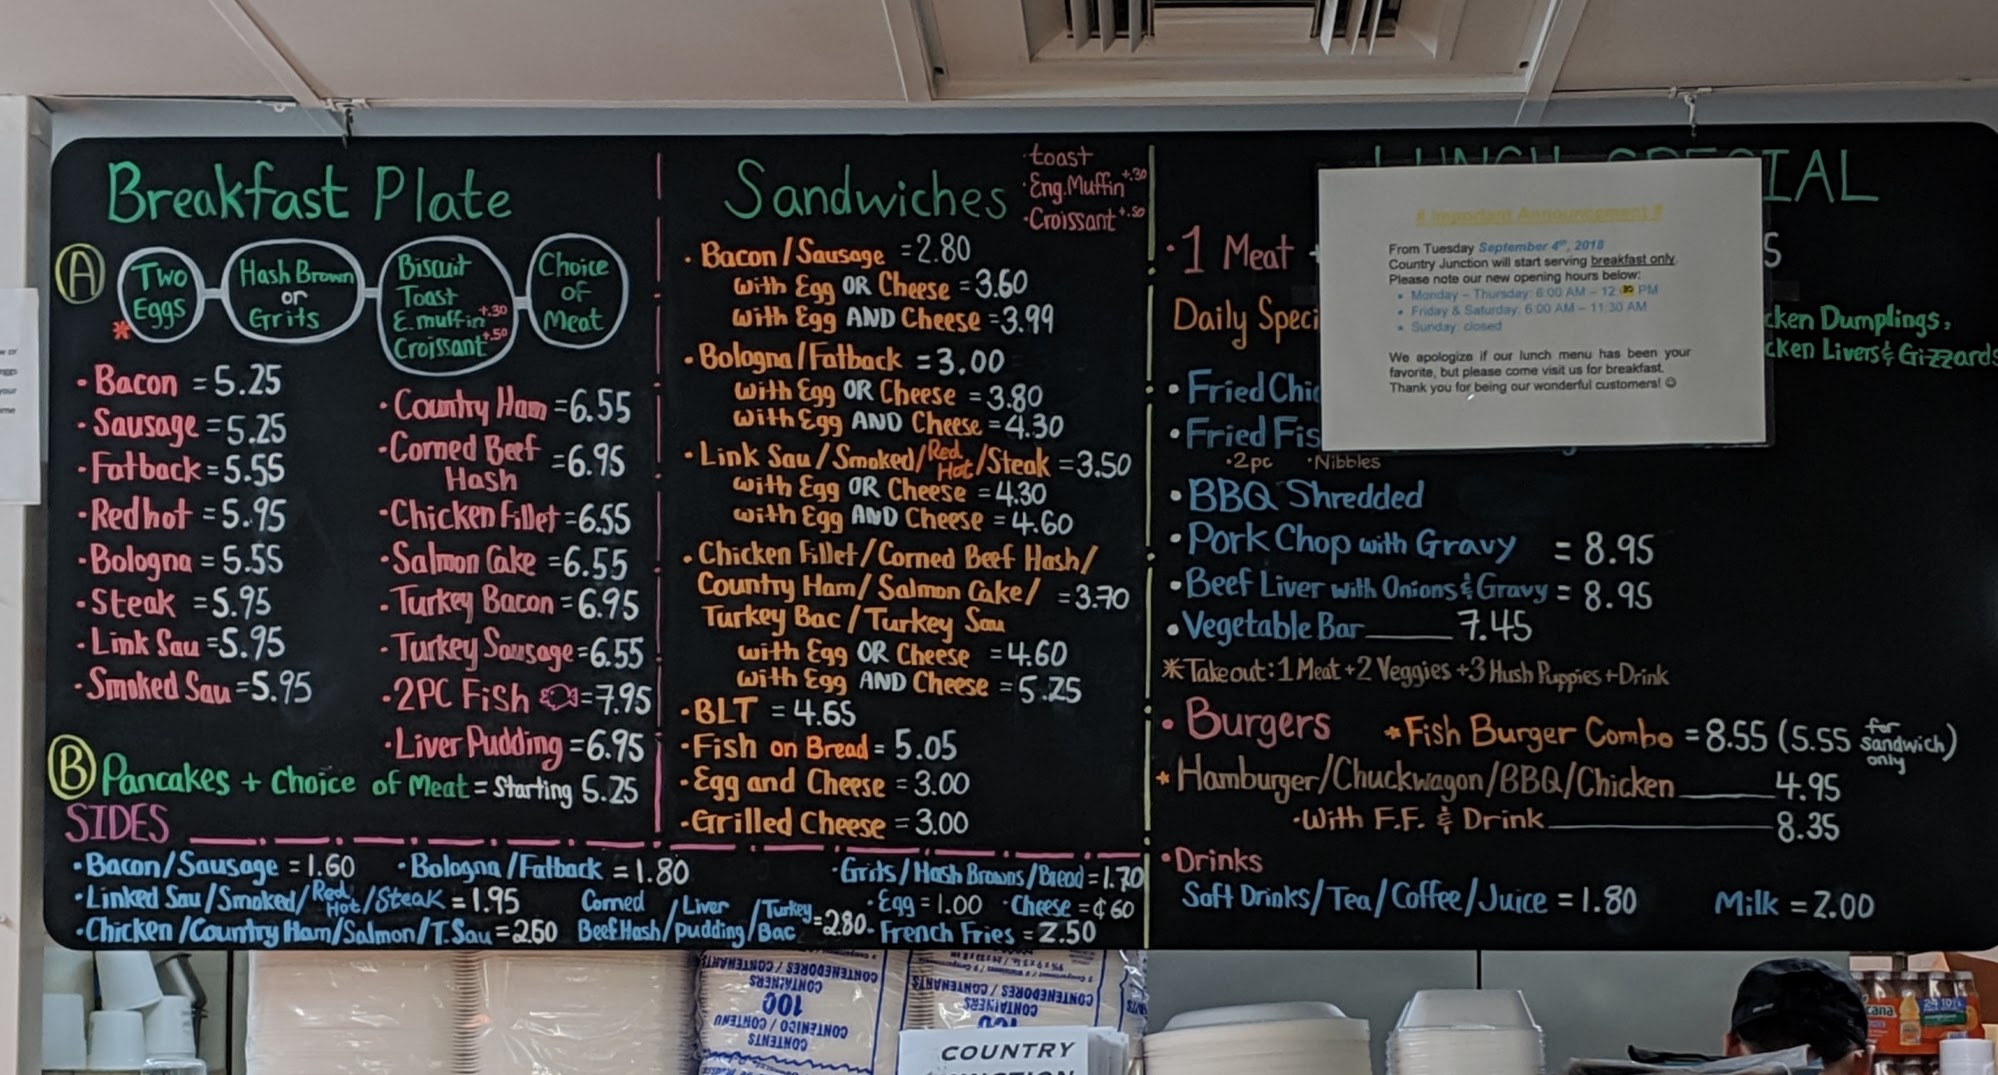 Breakfast Plate
A
Two Eggs
Hash Brown or Grits
Biscuit
Toast
E.muffin +.30
Croissant +.50
Choice of Meat
*
• Bacon = 5.25
• Sausage = 5.25
• Fatback = 5.55
• Redhot = 5.95
• Bologna = 5.55
• Steak = 5.95
• Link Sau = 5.95
• Smoked Sau = 5.95
• Country Ham = 6.55
• Corned Beef Hash = 6.95
• Chicken Fillet = 6.55
• Salmon Cake = 6.55
• Turkey Bacon = 6.95
• Turkey Sausage = 6.55
• 2PC Fish = 7.95
• Liver Pudding = 6.95
B Pancakes + Choice of Meat = Starting 5.25
SIDES
• Bacon/Sausage = 1.60 • Bologna/Fatback = 1.80 • Grits/Hash Browns/Bread = 1.70
• Linked Sau/Smoked/Red Hot/Steak = 1.95
• Chicken/Country Ham/Salmon/T.Sau = 2.60
Corned Beef Hash/Liver pudding/Turkey Bac = 2.80
• Egg = 1.00 • Cheese = ¢60
• French Fries = 2.50
Sandwiches
• toast
• Eng.Muffin +.30
• Croissant +.50
• Bacon/Sausage = 2.80
with Egg OR Cheese = 3.60
with Egg AND Cheese = 3.99
• Bologna/Fatback = 3.00
with Egg OR Cheese = 3.80
with Egg AND Cheese = 4.30
• Link Sau/Smoked/Red Hot/Steak = 3.50
with Egg OR Cheese = 4.30
with Egg AND Cheese = 4.60
• Chicken Fillet/Corned Beef Hash/
Country Ham/Salmon Cake/ = 3.70
Turkey Bac/Turkey Sau
with Egg OR Cheese = 4.60
with Egg AND Cheese = 5.25
• BLT = 4.65
• Fish on Bread = 5.05
• Egg and Cheese = 3.00
• Grilled Cheese = 3.00
LUNCH SPECIAL
• 1 Meat +
Daily Speci
cken Dumplings,
cken Livers & Gizzards
• Fried Chic
• Fried Fis
• 2pc • Nibbles
• BBQ Shredded
• Pork Chop with Gravy = 8.95
• Beef Liver with Onions & Gravy = 8.95
• Vegetable Bar 7.45
* Takeout: 1 Meat + 2 Veggies + 3 Hush Puppies + Drink
• Burgers
* Fish Burger Combo = 8.55 (5.55 for sandwich only)
* Hamburger/Chuckwagon/BBQ/Chicken 4.95
• With F.F. & Drink 8.35
• Drinks
Soft Drinks/Tea/Coffee/Juice = 1.80 Milk = 2.00
# Important Announcement #
From Tuesday September 4th, 2018
Country Junction will start serving breakfast only.
Please note our new opening hours below:
• Monday – Thursday: 6:00 AM – 12:30 PM
• Friday & Saturday: 6:00 AM – 11:30 AM
• Sunday: closed
We apologize if our lunch menu has been your
favorite, but please come visit us for breakfast.
Thank you for being our wonderful customers! ☺
CONTAINERS / CONTENEDORES / CONTENANTS
100
CONTENTS / CONTENIDO / CONTENU
COUNTRY
JUNCTION